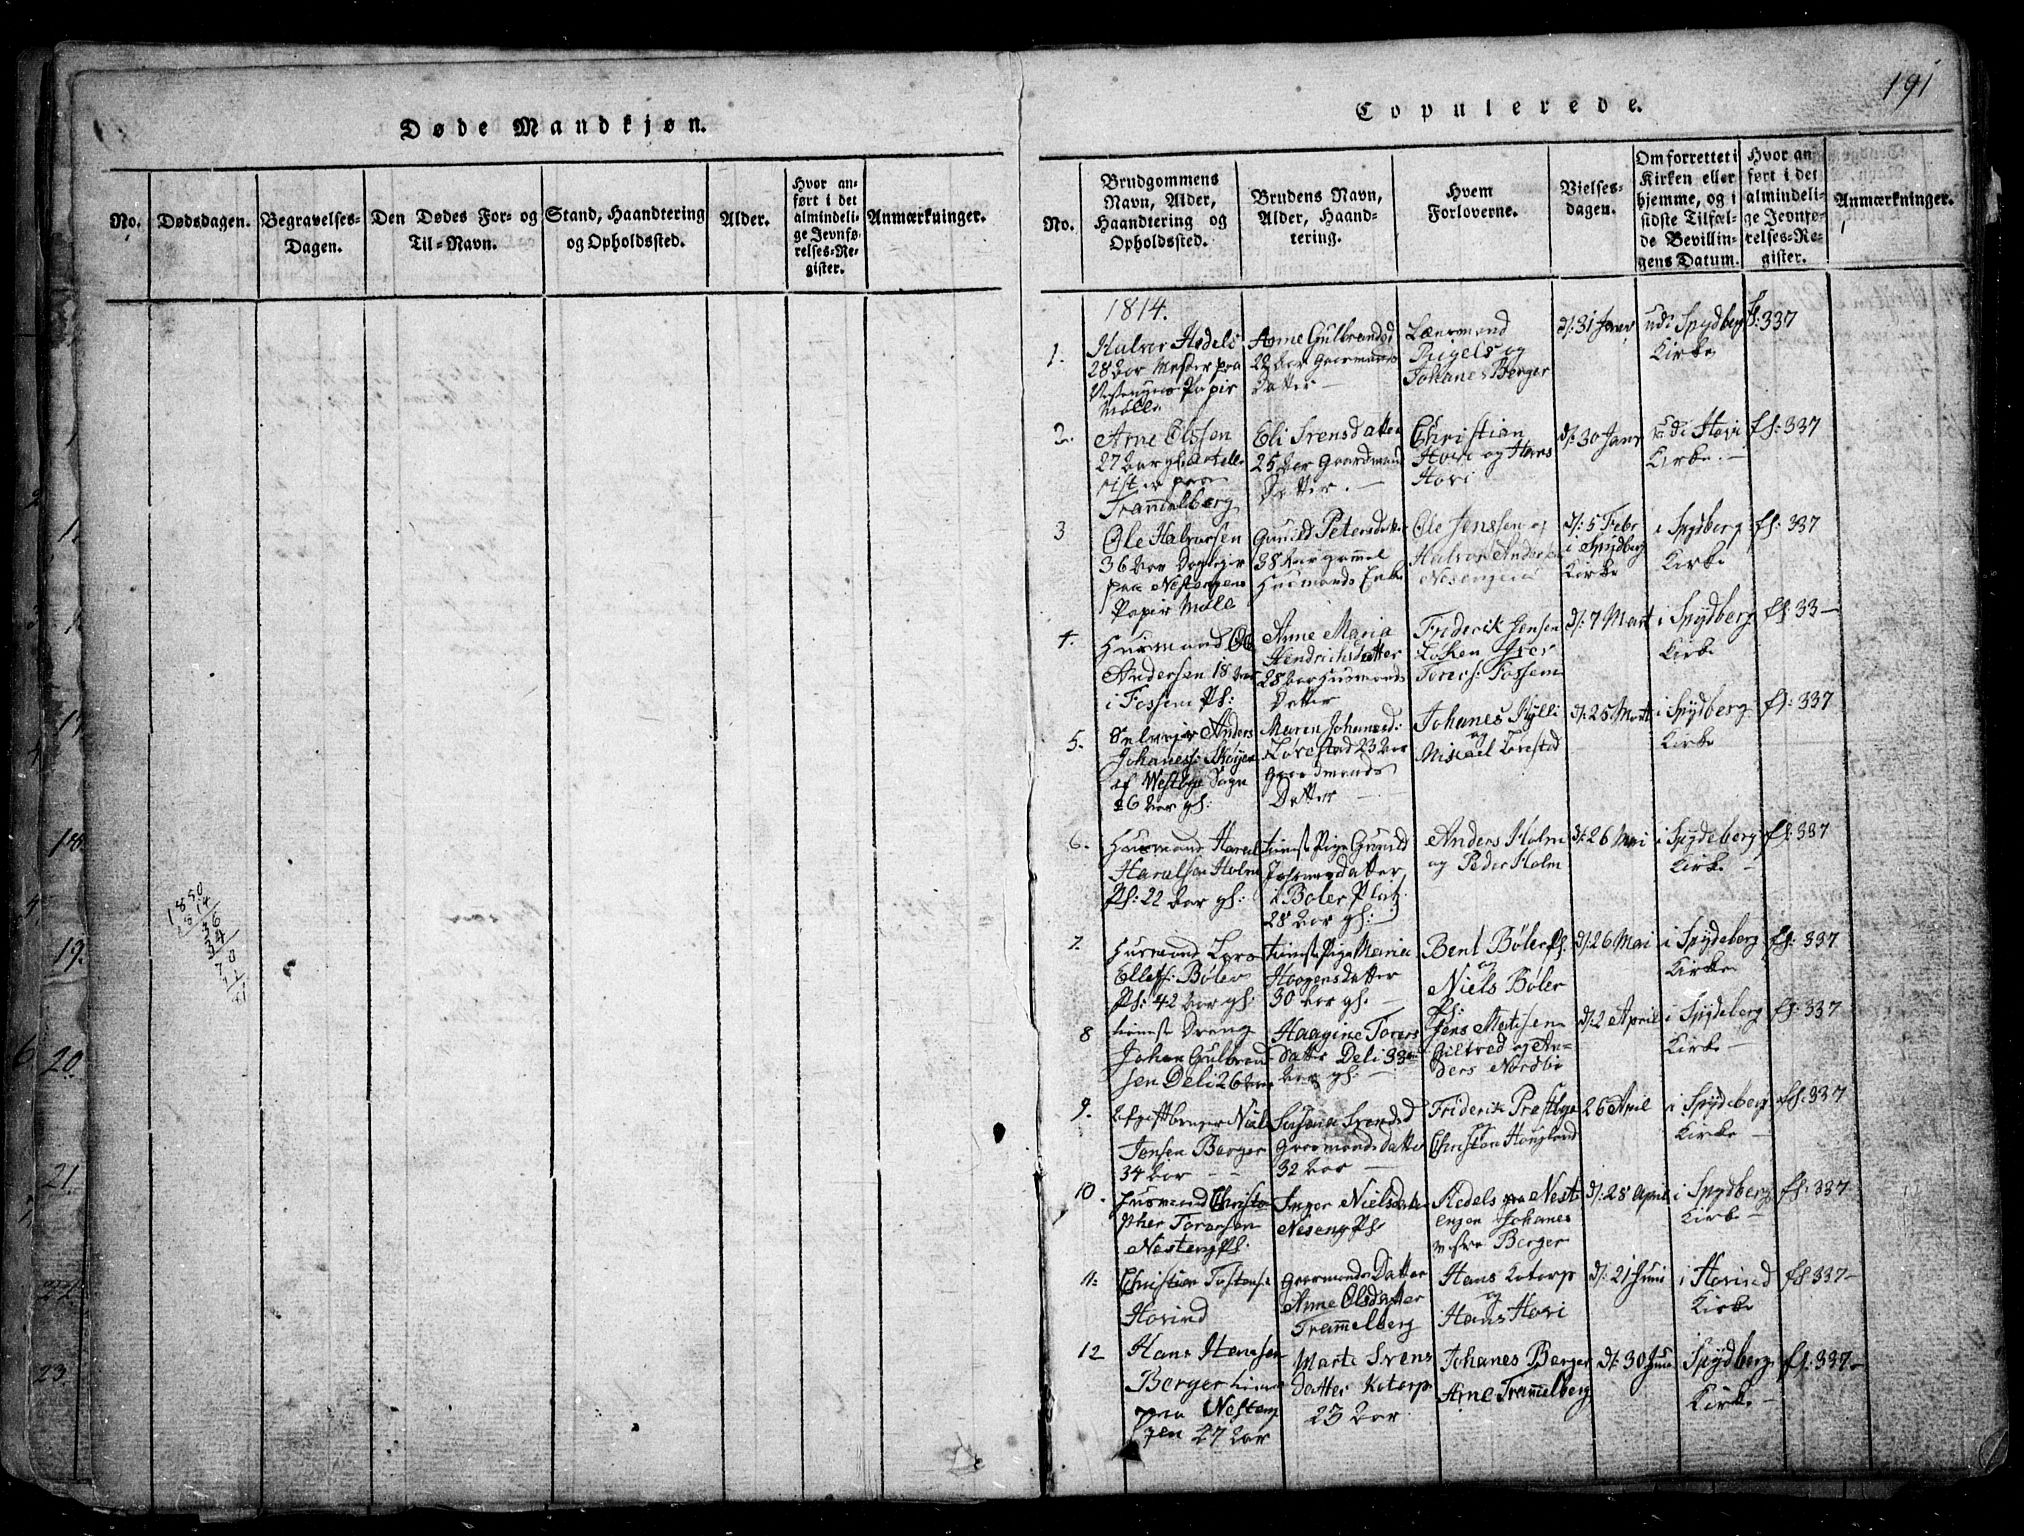 191
Døde Mandkjøn.
No.
Dødsdagen.
Begravelses-
Dagen.
Den Dødes For- og
Til-Navn.
Stand, Haandtering
og Opholdssted.
Alder.
Hvor an-
ført i det
almindeli-
ge Jevnfø-
relses-Re-
gister.
Anmærkninger.
1850
1814
36
34
70
Copulerede.
No.
Brudgommens
Navn, Alder,
Haandtering og
Opholdssted.
Brudens Navn,
Alder, Haand-
tering.
Hvem
Forloverne.
Vielses-
dagen.
Om forrettet i
Kirken eller
hjemme, og i
sidste Tilfæl-
de Bevillin-
gens Datum.
Hvor an-
ført i det
almindeli-
ge Jevnfø-
relses-Re-
gister.
Anmærkninger.
1814.
1.
Halvor
28 Aar Mester paa
Papir
Mølle
Anne Gulbrandsd
22 Aar Gaarmands
Datter —
og
Johanes Berger
d: 31 Janr
udi Spydberg
Kirke
f: 337
2.
Arne Olssen
27 Aar gl:
paa
Trammelberg
Eli Svensdatter
25 Aar Gaardmand
Datter. —
Christian
Hovi og Hans
Hovi
d: 30 Janr
udi Hovi
Kirke. —
fl: 337
3
Ole Halvorsen
36 Aar
paa Nestengens
Papir Mølle
Gunild Petersdatter
38 Aar gammel
Huusmands Enke
Ole Jenssen og
Halvor Anders
d: 5 Febr
i Spydberg
Kirke
i Spydberg
Kirke
fl: 337
4.
Huusmand Ole
Andersen 18 Aar
i Fossem Pl:
Anne Maria
Hendrichsdatter
28 Aar Huusmands
Datter
Friderik Jensen
Løken Iver
Torers: Fossem
d: 7 Mart
i Spydberg
Kirke
fl: 33—
5.
Selveier Anders
Johaness: Skoijen
af Westbye Sogn
26 Aar gl:
Maren Johannesd:
Lorestad 23 Aar
Gaardmands
Datter —
Johanes Kylli
og
Mikael Lorestad
d: 25 Mart
i Spydberg
Kirke
fl: 337
6.
Huusmand
Haralsen Holm
Pl: 22 Aar gl:
tienst Pige Gunild
i Boler Platz
28 Aar gl:
Anders Holm
og Peder Holm
d: 26 Mai
i Spydeberg
Kirke —
fl: 337
7.
Huusmand Lars
Ellefs: Bøler
Pl: 42 Aar gl:
tienst Pige Maria
Haagensdatter
30 Aar gl: —
Bent Bøler Pl.
og
Niels Bøler
Pl:
d: 26 Mai
i Spydeberg
Kirke
fl: 337
8
tienst Dreng
Johan Gulbrand-
sen Deli 26 Aar
Haagine Torers
datter Deli 33
Aar gl: —
Jens
Giltved og An-
ders Nordbi
d: 2 April
i Spydeberg
Kirke —
fl: 337
9.
Niels
Jensen Berger
34 Aar
Svendsd
Gaarmands Datter
32 Aar —
Friderik Prestbye
og
Christen Haugland
26 April
i Spydeberg
Kirke —
fl: 337
10.
Huusmand Christo
pher Torersen
Nesteng Pl.
Inger Nielsdatter
Neseng Pl
Kedels paa Nest
engen Johanes
Berger
d: 28 April
i Spydberg
Kirke —
fl: 337
11:
Christian Tostense
Hovind
Gaarmands Datter
Anne Olsdatter
Trammelberg
Hans Kotorp
og
Hans Hovi
d: 21 Juni
i Hovind
Kirke
fl 337—
12
Hans Hansen
Berger
paa Nesten
gen 27 Aar
Marte Svens
datter Kotorp
23 Aar
Johanes Berger
Arne Trammelberg
d: 30 Juni
Spydberg
Kirke —
fl: 337—
2
3
4
6
17.
18.
19.
20.
21.
22.
23.